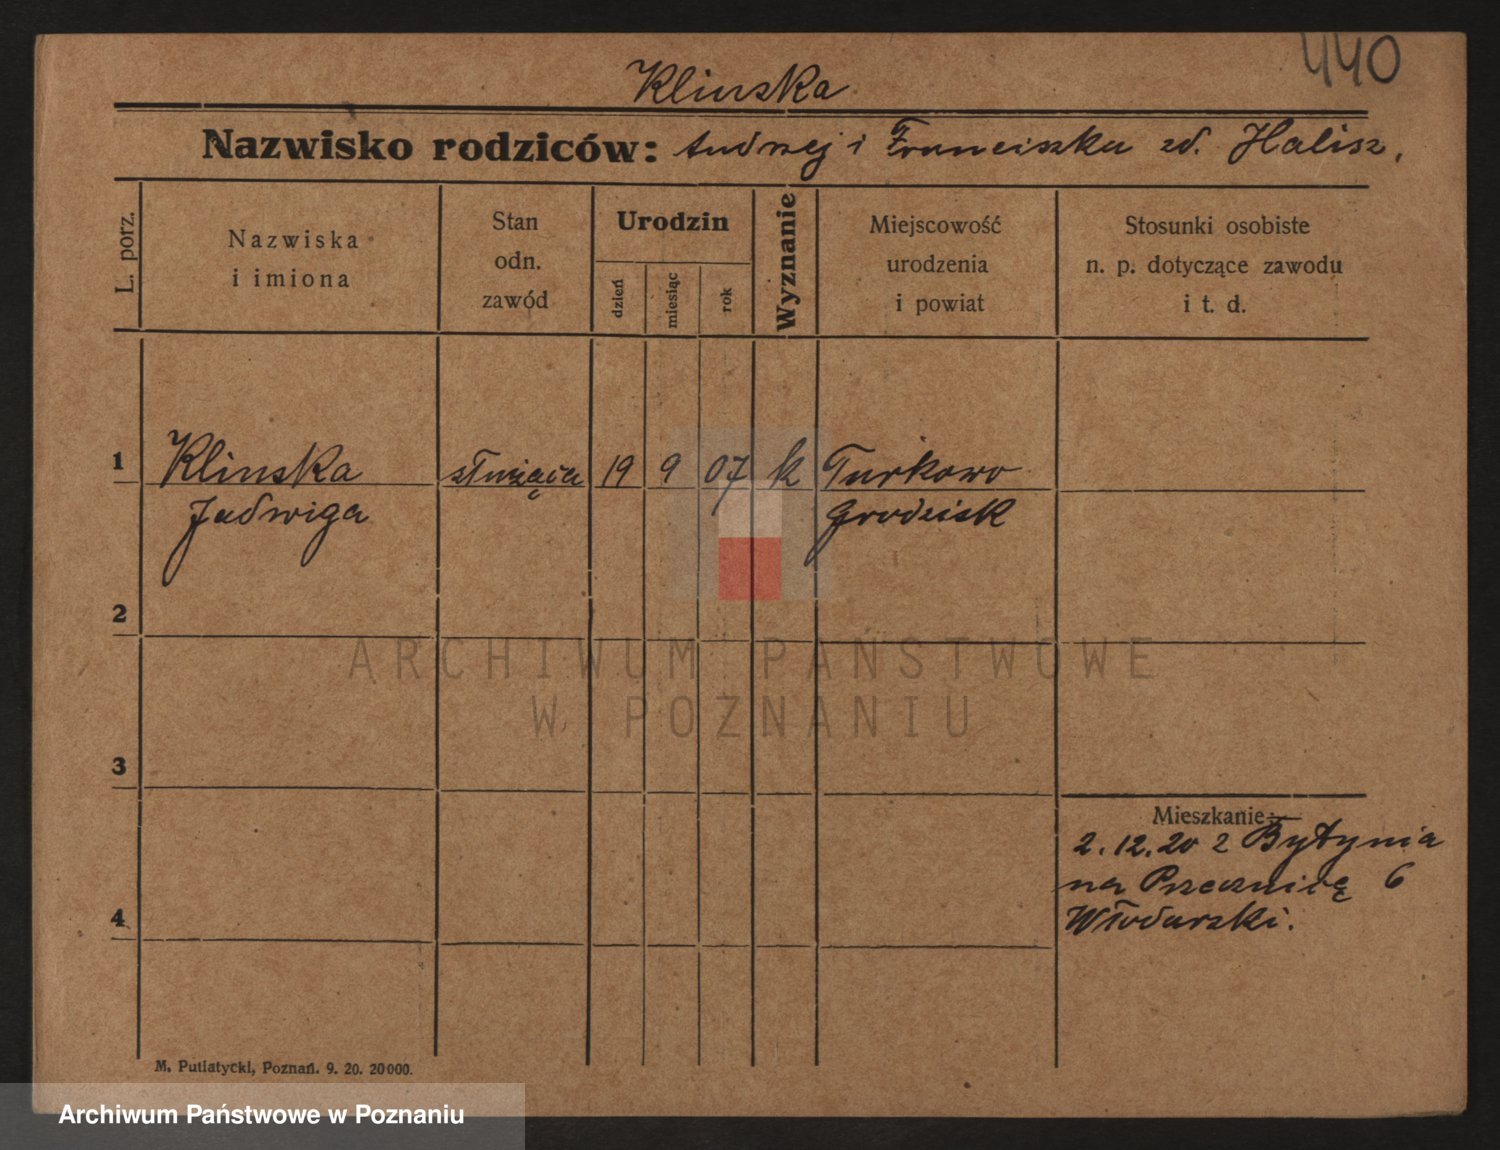 440
Klinska
Nazwisko rodziców: Andrzej i Franciszka zd. Halisz,
L. porz.
Nazwiska
i imiona
Stan
odn.
zawód
Urodzin
dzień
miesiąc
rok
Wyznanie
Miejscowość
urodzenia
i powiat
Stosunki osobiste
n. p. dotyczące zawodu
i t. d.
1 Klinska służąca 19 9 07 k Turkowo
Jadwiga Grodzisk
2
3
4
ARCHIWUM PAŃSTWOWE
W POZNANIU
Mieszkanie
2.12.20 z Bytynia
na Przecznicę 6
Włodarski.
M. Putiatycki, Poznań. 9. 20. 20000.
Archiwum Państwowe w Poznaniu